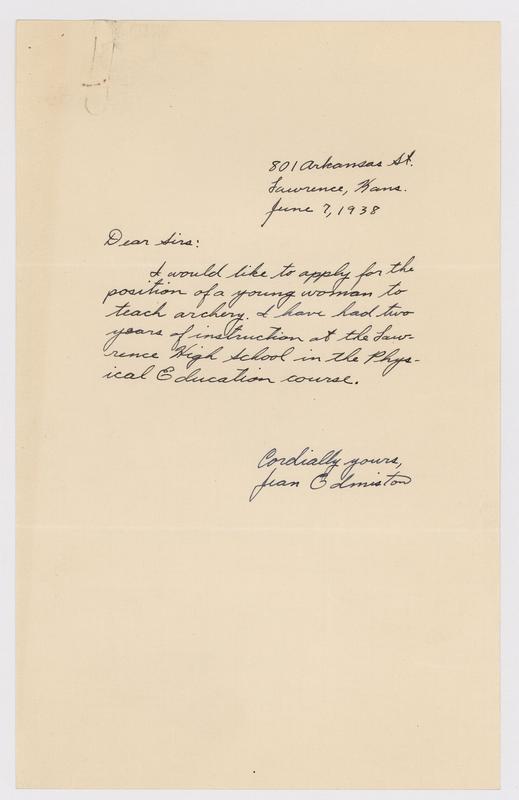 801 Arkansas St.
Lawrence, Kans.
June 7, 1938
Dear Sirs:
I would like to apply for the
position of a young woman to
teach archery. I have had two
years of instruction at the Law-
rence High School in the Phys-
ical Education course.
Cordially yours,
Jean Edmiston